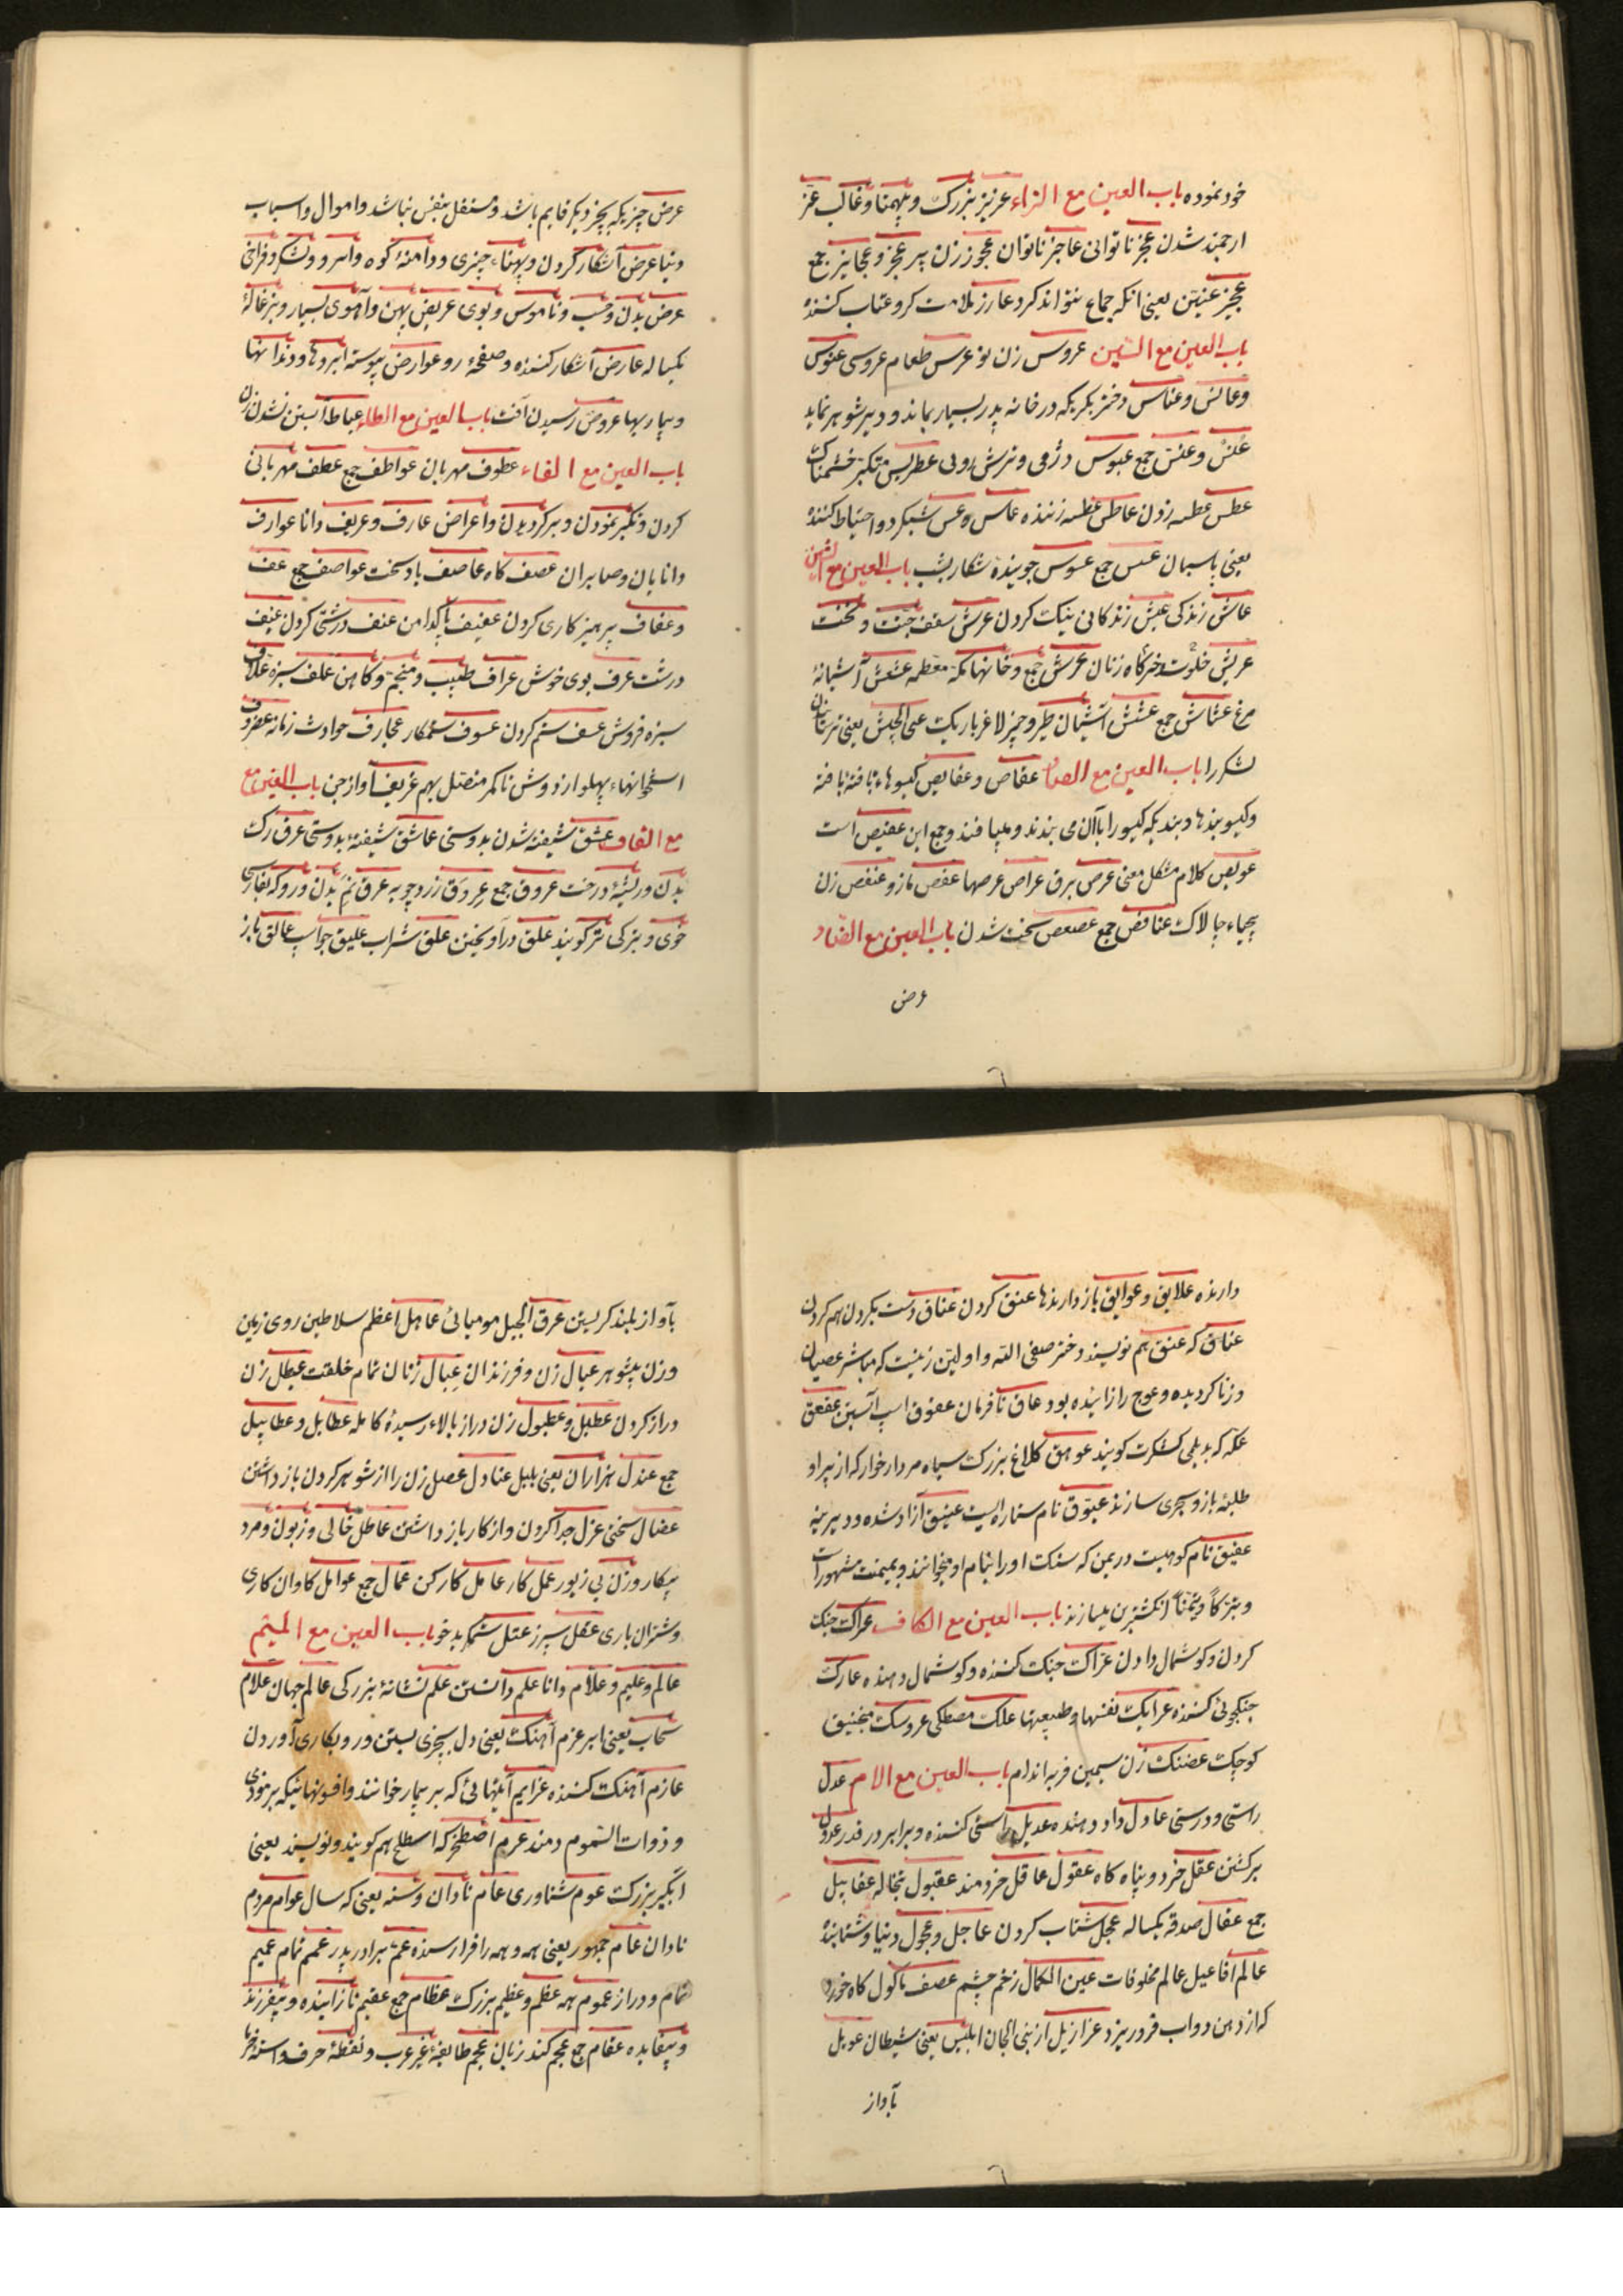 خود نموده باب العین مع الزاء عزیز بزرک و بیهمتا و غالب عز
ارجمند شدن عجز ناتوانی عاجز ناتوان عجوز زن پیر عجز و عجایز جمع
عجیز عنین یعنی انکه جماع نتواند کرد عارز ملامت کر و عتاب کننده
باب العین مع السین عروس زن نو عرس طعام عروسی عنوس
و عانس و عناس دختر بکریکه در خانه پدر بسیار بماند و دیر شوهر نماید
عنس و عنس جمع عبوس دژمی و ترش رویی عطریس متکبر خشمناک
عطس عطسه زدن عاطس عطسه زننده عاس و عس شبکرد و احتیاط کننده
یعنی پاسبان عسس جمع عسوس جوینده شکار بشب باب العین مع الشین
عاش زندکی عیش زندکانی نیک کردن عرش سقف جنت و تخت
عریش خلوت خرکاه زنان عرش جمع و خانهای مکه معظمه عشعش آشیانه
مرغ عشاش جمع عشش آشیان طیر و چیز لاغر باریک عی الجیش یعنی ترسان
لشکر را باب العین مع الصاد عقاص و عقایص کیسوهاء بافته بافته
و کیسوبندها دبندیکه کیسو را باآن می بندند و میبافند و جمع این عقیص است
عویص کلام مشکل معنی عرص برق عراص عرصها عفص مازو عنفص زن
بیحیاء چالاک عنافص جمع عصعص سخت شدن باب العین مع الضاد
عرض
عرض چیزیکه بچیز دیکر قایم باشد و مستقل بنفس نباشد و اموال و اسباب
دنیا عرض آشکار کردن و پهناء چیزی و دامنهٔ کوه و اسر و ولشکر و فراخی
عرض بدن و حسب و ناموس و بوی عریض پهن و آهوی بسیار و بزغالهٔ
یکساله عارض آشکار کننده و صفحهٔ رو عوارض پیوسته ابروها و دندانها
و بیماریها عروض رسیدن آفت باب العین مع الطاء عباط آبستن نشدن زن
باب العین مع الفاء عطوف مهربان عواطف جمع عطف مهربانی
کردن و تکبر نمودن و برکردیدن و اعراض عارف و عریف دانا عوارف
دانایان و صابران عصف کاه عاصف باد سخت عواصف جمع عف
و عفاف پرهیزکاری کردن عفیف پاکدامن عنف درشتی کردن عنیف
درشت عرف بوی خوش عراف طبیب و منجم و کاهن علف سبزه علاف
سبزه فروش عسف ستم کردن عسوف ستمکار عجارف حوادث زمانه غضروف
استخوانهاء پهلو از دوش تا کمر متصل بهم عزیف آواز جن باب العین مع
مع القاف عشق شیفته شدن بدوستی عاشق شیفتهٔ بدوستی عرق رک
بدن و ریشهٔ درخت عروق جمع عروق زردچوبه عرق نم بدن و رو که بفارسی
خوی و بترکی تر کویند علق درآویختن علق شراب علیق جو اسب عالق باز
دارنده علایق و عوایق بازدارندها عنق کردن عناق دست بکردن هم کردن
عناق که عنق هم نویسند دختر صفی الله و اولین زنیست که مباشر عصیان
و زنا کردیده و عوج را زاییده بود عاق نافرمان عقوق اسب آبستن عقعق
عکه که بدیلمی کشکرت کویند عوهق کلاغ بزرک سیاه مردارخوار که از پر او
طلبهٔ باز و سحری سازند عیوق نام ستاره ایست عتیق آزاد شده و دیرینه
عقیق نام کوهیست در یمن که سنک او را بنام او میخوانند و بمیمنت مشهور است
و تبرکا و تیمنا انکشترین میسازند باب العین مع الکاف عراک جنک
کردن و کوشمال دادن عراک جنک کننده و کوشمال دهنده عارک
جنکجوئی کننده عرایک نفسها و طبیعتها علک مصطکی عروسک منجنیق
کوچک عضنک زن سیمین فربه اندام باب العین مع الام عدل
راستی و درستی عادل داد دهنده عدیل راستی کننده و برابر در قدر عدول
برکشتن عقل خرد و پناه کاه عقول عاقل خردمند عقبول بتخاله عقابیل
جمع عقال صدقه یکساله عجل شتاب کردن عاجل و عجول دنیا و شتابنده
عالم افاعیل عالم مخلوقات عین الکمال زخم چشم عصف مأکول کاه خورد
که از دهن دواب فرو ریزد عزازیل از بنی الجان ابلیس یعنی شیطان عویل
بآواز
بآواز بلند کریستن عرق الجبل مومیائی عاهل اعظم سلاطین روی زمین
و زن بیشوهر عیال زن و فرزندان عبال زنان تمام خلقت عیطل زن
دراز کردن عطبل و عطبول زن دراز بالاء رسیدهٔ کامله عطابل و عطابیل
جمع عندل هزاران یعنی بلبل عنادل عضل زن را از شوهر کردن باز داشتن
عضال سختی عزل جدا کردن و از کار باز داشتن عاطل خالی و زبون و مرد
بیکار و زن بی زیور عمل کار عامل کارکن عمال جمع عوامل کاوان کاری
و شتران باری عقل سپرز عتل ستمکر بدخو باب العین مع المیم
عالم و علیم و علام دانا علم دانستن علم نشانهٔ بزرکی عالم جهان علام
سحاب یعنی ابر عزم آهنک یعنی دل بچیزی بستن و رو بکاری آوردن
عازم آهنک کننده عزایم آیتهائی که بر بیمار خوانند و افسونهائیکه بر موذی
و ذوات السموم دمند عرم اصطخر که اسطلخ هم کویند و نویسند یعنی
ابکیر بزرک عوم شناوری عام نادان و سنه یعنی که سال عوام مردم
نادان عام جمهور یعنی همه و همه را فرارسنده عم برادر پدر عمم تمام عمیم
تمام و دراز عموم همه عظم و عظیم بزرک عظام جمع عقیم نازاینده و بیفرزند
و بیفایده عقام جمع عجم کند زبان عجم طایفهٔ غیر عرب و نقطهٔ حرف و استهٔ خرما